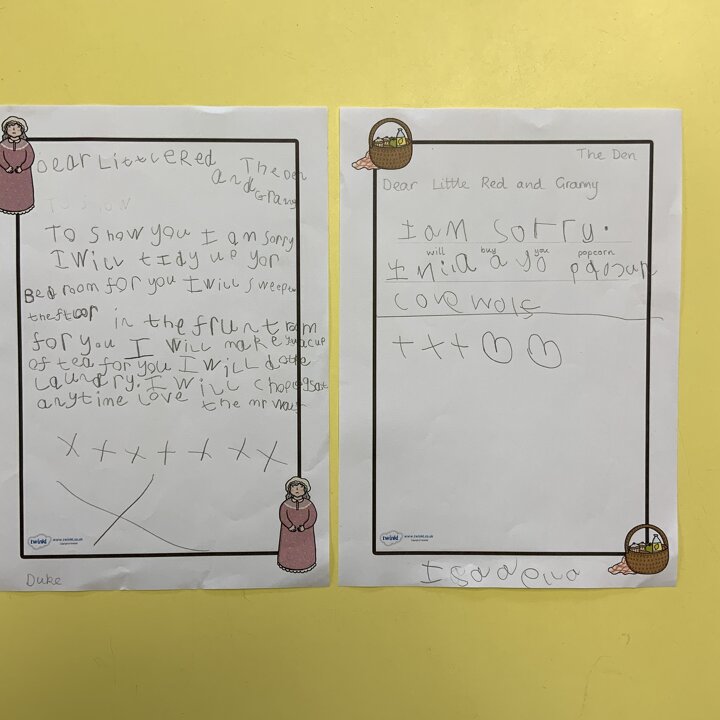 Dear Little Red The Den
and Grany
To show
To show you I am sorry
I will tidy up yor
Bed room for you I will sweepe
the floor in the frunt room
for you I will make you a cup
of tea for you I will do the
Laundry. I will chop
anytime love the mr wolf
x x x x x x x
x
twinkl www.twinkl.co.uk
Duke
The Den
Dear Little Red and Granny
I am sorry.
will buy you popcorn
I will a yo
x x x
twinkl www.twinkl.co.uk